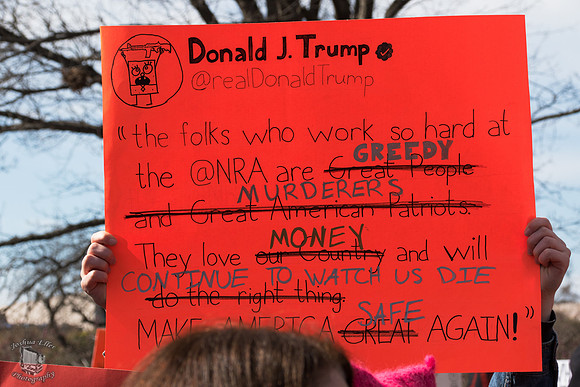 Donald J. Trump
@realDonaldTrump
"the folks who work so hard at
GREEDY
the @NRA are Great People
MURDERERS
and Great American Patriots.
MONEY
They love our Country and will
CONTINUE TO WATCH US DIE
do the right thing.
SAFE
MAKE AMERICA GREAT AGAIN!"
Joshua Eller
Photography